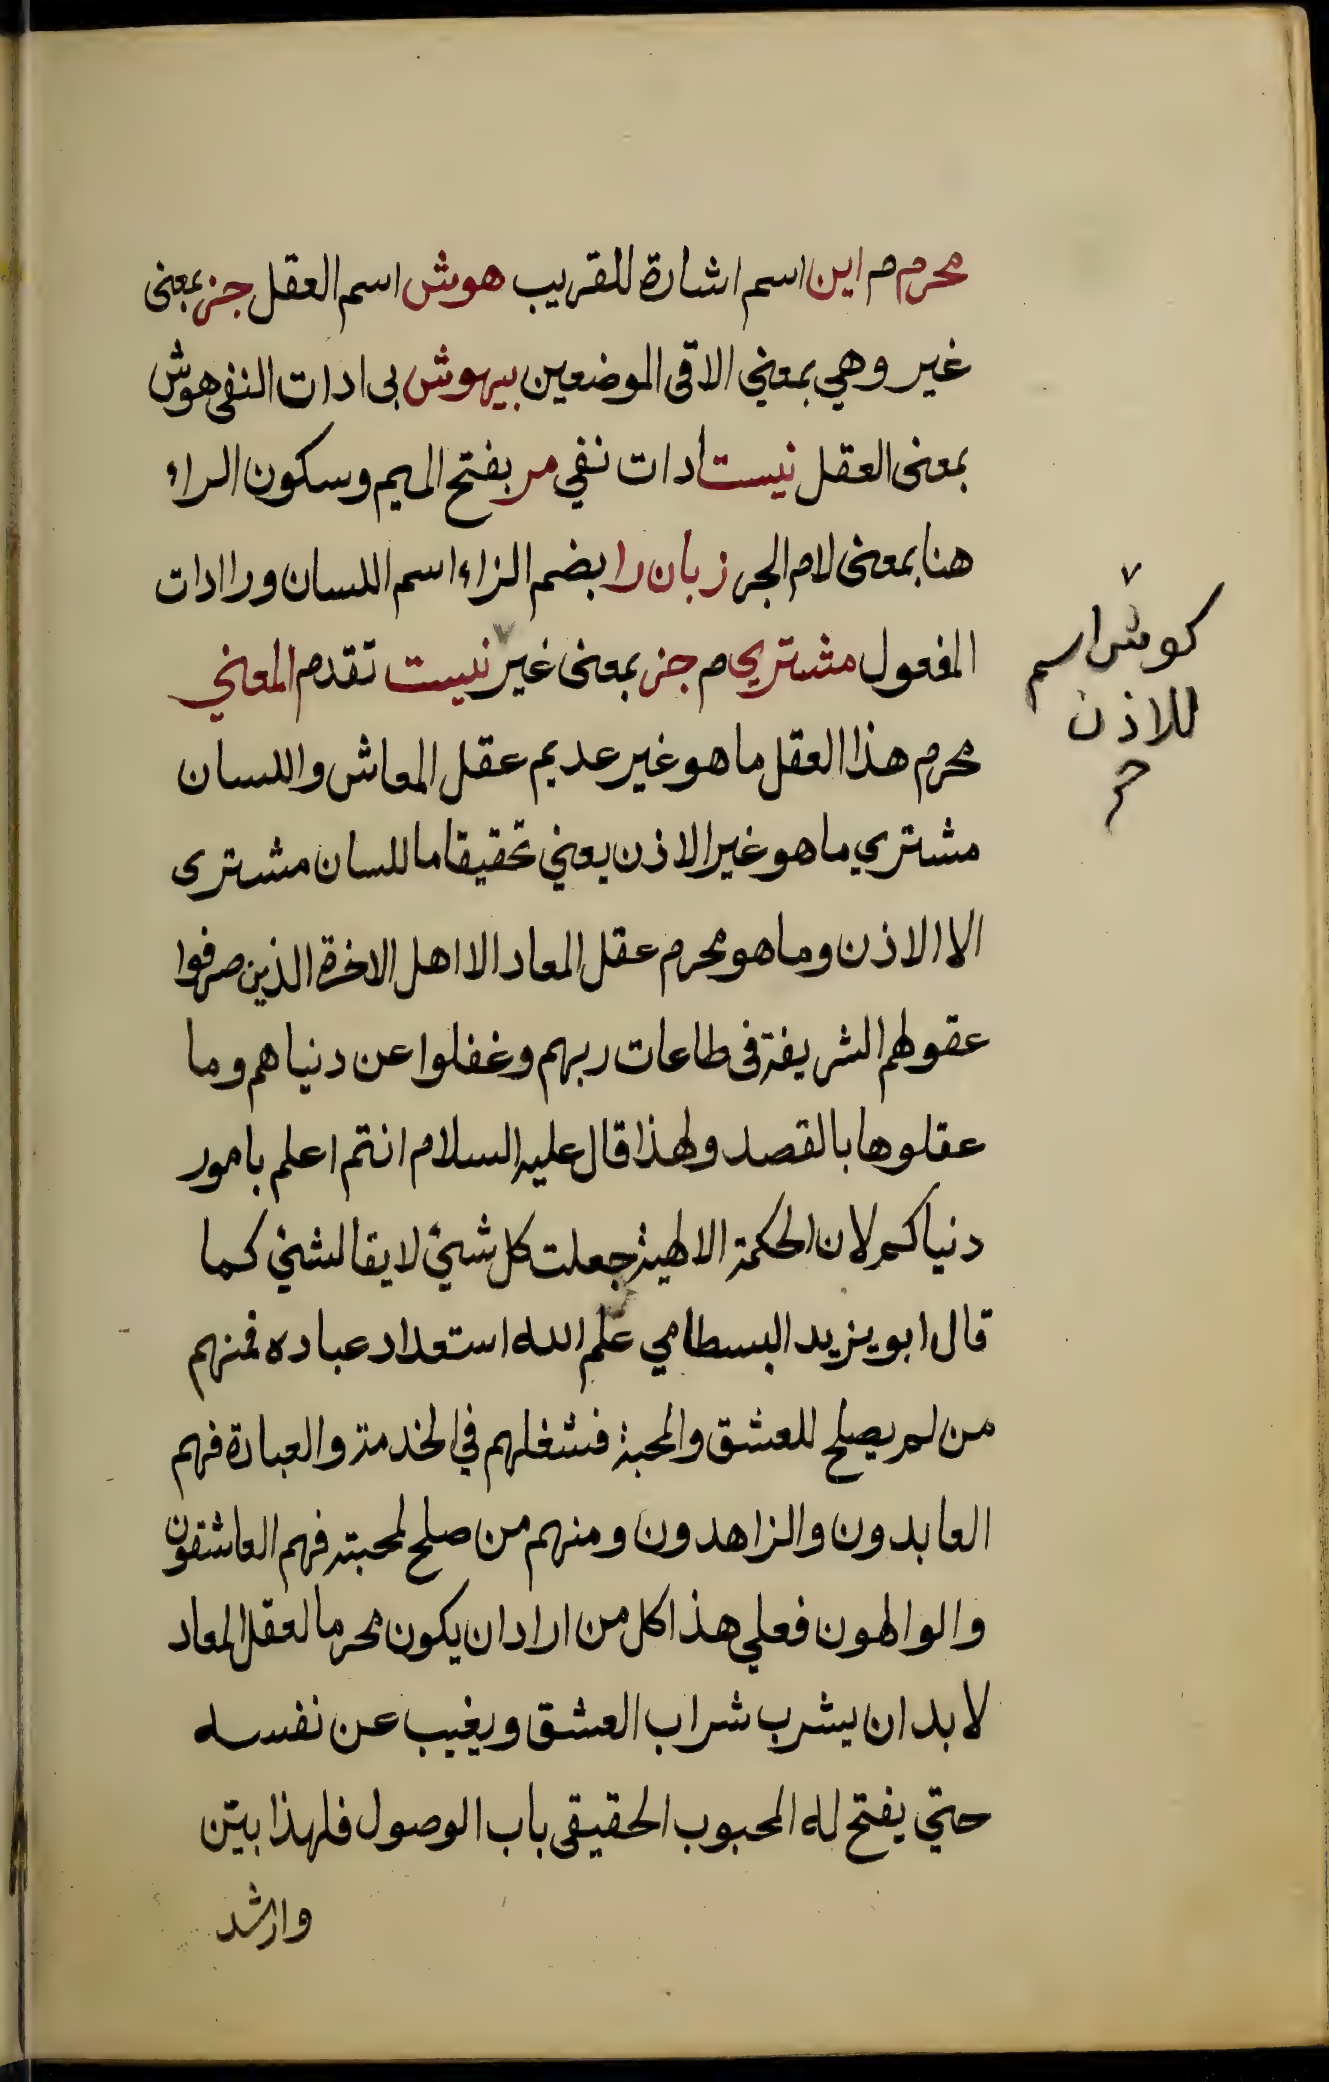 محرم م اين اسم اشارة للقريب هوش اسم العقل جز بمعنى
غير وهي بمعني الا في الموضعين بيهوش بى ادات النفى هوش
بمعنى العقل نيست ادات نفي مر بفتح الميم وسكون الراء
هنا بمعنى لام الجر زبان را بضم الزاء اسم اللسان ورا ادات
المفعول مشتري م جز بمعنى غير نيست تقدم المعني
كوش اسم
للاذن
محرم هذا العقل ما هو غير عديم عقل المعاش واللسان
مشتري ما هو غير الاذن يعني تحقيقا ما للسان مشترى
الا الاذن وما هو محرم عقل المعاد الا اهل الاخرة الذين صرفوا
عقولهم الشريفة فى طاعات ربهم وغفلوا عن دنياهم وما
عقلوها بالقصد ولهذا قال عليه السلام انتم اعلم بامور
دنياكم لان الحكمة الالهية جعلت كل شيئ لايقا لشئ كما
قال ابو يزيد البسطامي علم الله استعداد عباده فمنهم
من لم يصلح للعشق والمحبة فشغلهم في الخدمة والعبادة فهم
العابدون والزاهدون ومنهم من صلح لمحبته فهم العاشقون
والوالهون فعلي هذا كل من اراد ان يكون محرما لعقل المعاد
لا بد ان يشرب شراب العشق ويغيب عن نفسه
حتي يفتح له المحبوب الحقيقى باب الوصول فلهذا بيّن
وارشد